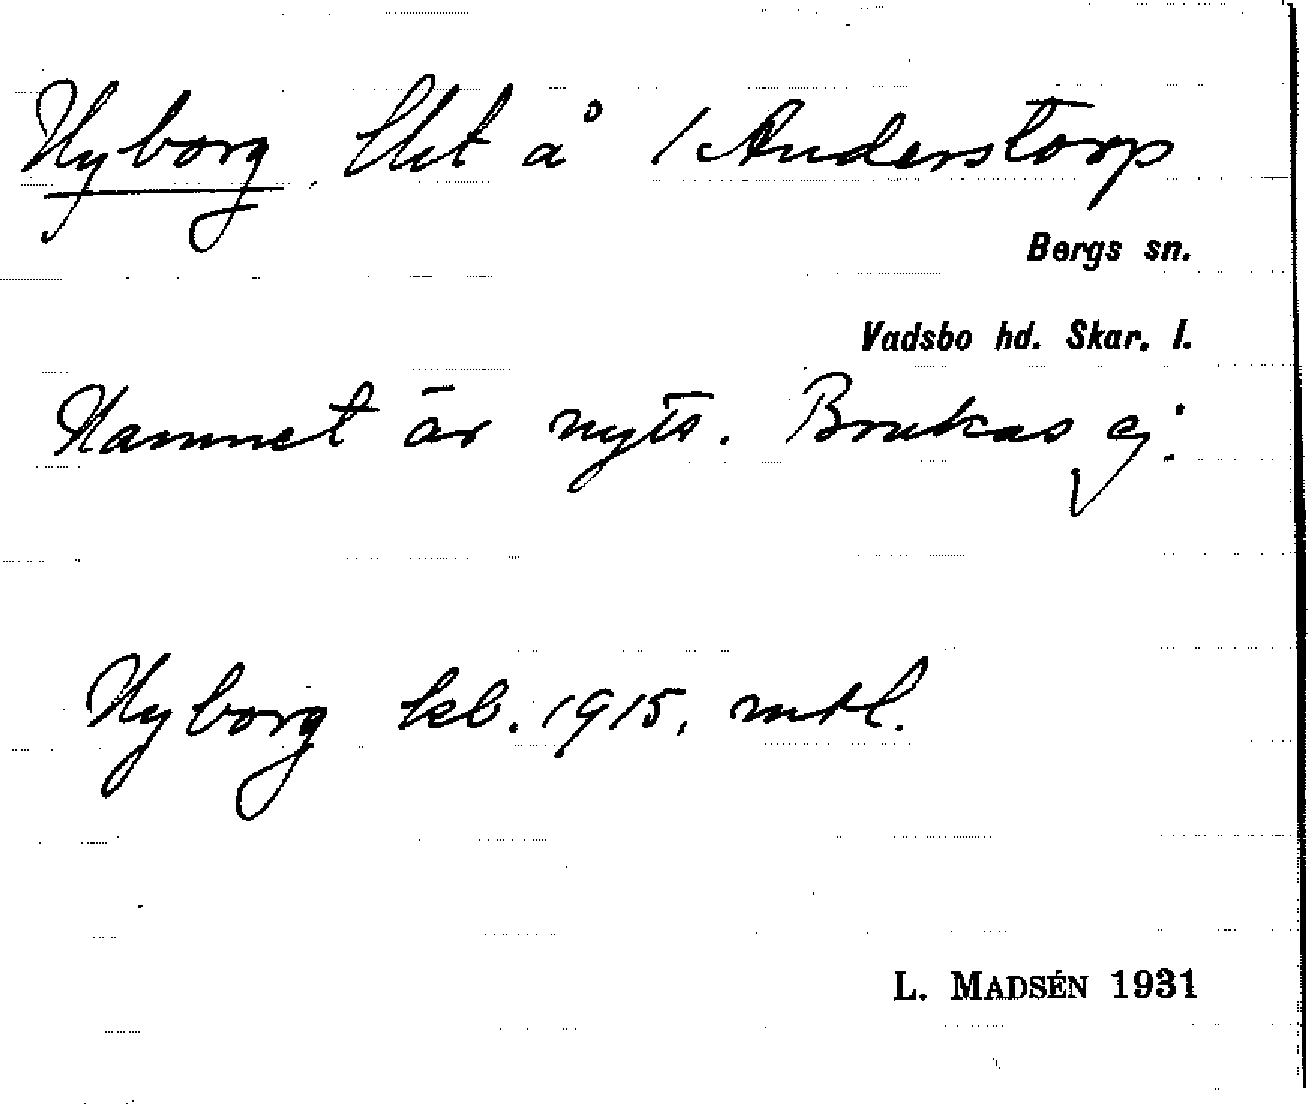 Nyborg, lht å 1 Anderstorp
Bergs sn.
Vadsbo hd. Skar. l.
Namnet är nytt. Brukas ej.
Nyborg kb. 1915, mtl.
L. MADSÉN 1931